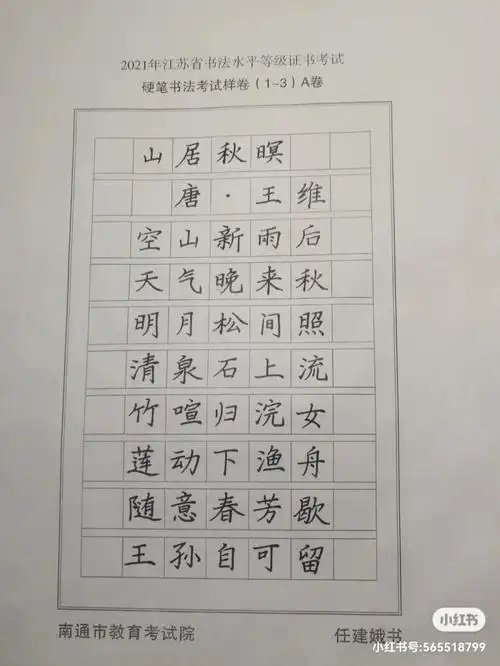 2021年江苏省书法水平等级证书考试
硬笔书法考试样卷（1-3）A卷
山居秋暝
唐·王维
空山新雨后
天气晚来秋
明月松间照
清泉石上流
竹喧归浣女
莲动下渔舟
随意春芳歇
王孙自可留
南通市教育考试院 任建娥书
小红书
小红书号:565518799